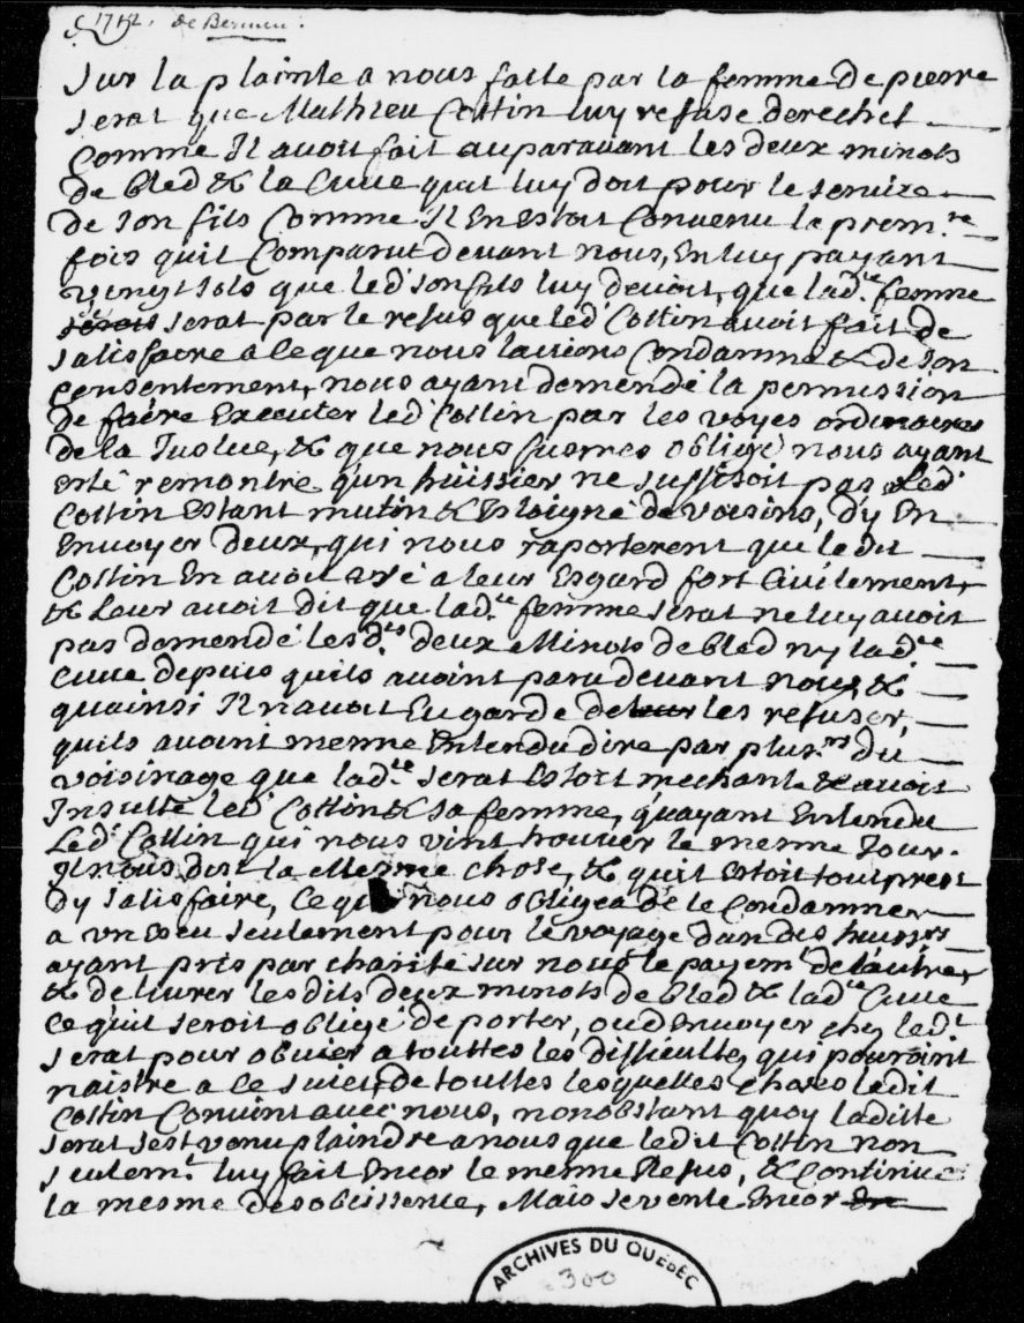 1712. de Bermen.
Sur la plainte a nous faitte par la femme de pierre
serat que Mathieu Cottin luy refuse derechef
Comme Il avoit fait auparavant les deux minots
de bled & la Cuve quil luy doit pour le service
de son fils Comme Il En estoit Convenu la prem.re
fois quil Comparut devant nous, En luy payant
vingt sols que led' son fils luy devoit, que lad.te femme
serat par le refus que led' Cottin avoit fait de
satisfaire a Ce que nous lavions Condamné & de son
Consentement, nous ayant demendé la permission
de faire Executer led' Cottin par les voyes ordinaires
de la Justice, & que nous fusmes obligé nous ayant
esté remontre qun huissier ne suffisoit pas led'
Cottin Estant mutin & Esloigné de voisins, dy En
Envoyer deux, qui nous raporterent que ledit
Cottin En avoit usé a leur Esgard fort Civilement,
& Leur avoit dit que lad.te femme serat ne luy avoit
pas demendé les d.ts deux Minots de bled ny lad.te
Cuve depuis quils avoint paru devant nous, &
quainsi Il navoit Eu garde de les refuser,
quils avoint mesme Entendu dire par plus.rs du
voisinage que lad.te serat Estoit mechante & avoit
Insulté led' Cottin & sa femme, quayant Entendu
Led.t Cottin qui nous vint trouver le mesme Jour.
Il nous dit la Mesme chose, & quil estoit tout prest
dy satisfaire, Ce qui nous obligea de le Condamner
a un Escu seulement pour le voyage dun des huiss.rs
ayant pris par charité sur nous le payem.t de lautre,
& de livrer lesdits deux minots de bled & lad.te Cuve
Ce quil seroit obligé de porter, ou d'Envoyer chez led.t
serat pour obvier a touttes les difficultez qui pouroint
naistre a Ce suiet, de touttes lesquelles choses ledit
Cottin Convint avec nous, nonobstant quoy laditte
serat sest venu plaindre a nous que ledit Cottin non
seulem.t luy fait Encor le mesme Refus, & Continue
la mesme desobeissence, Mais se vente Encor
ARCHIVES DU QUÉBEC
300